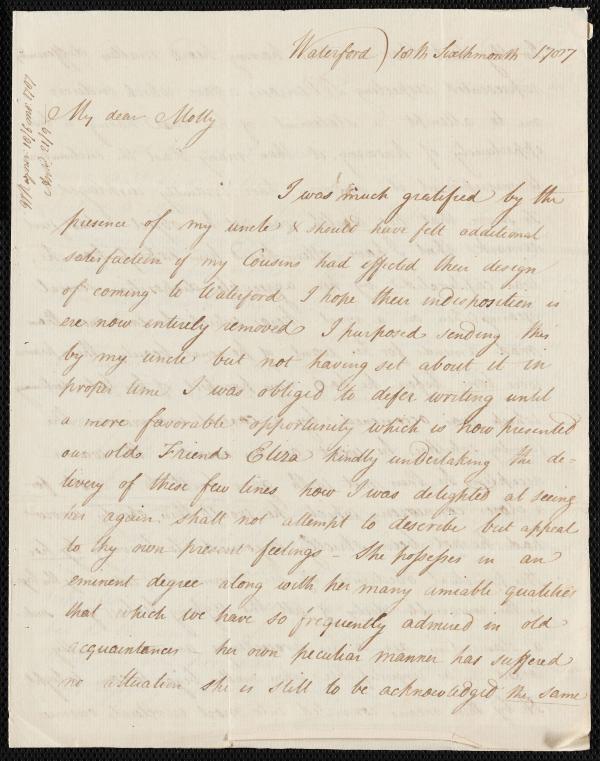 Waterford 18th Sixthmonth 1797
My dear Molly
I was much gratified by the
presence of my uncle & should have felt additional
satisfaction if my Cousins had effected their design
of coming to Waterford I hope their indisposition is
ere now entirely removed I purposed sending this
by my uncle but not having set about it in
proper time I was obliged to defer writing until
a more favorable opportunity which is now presented
our old Friend Eliza kindly undertaking the de-
livery of these few lines how I was delighted at seeing
her again shall not attempt to describe but appeal
to thy own present feelings - She possesses in an
eminent degree along with her many amiable qualities
that which we have so frequently admired in old
acquaintances - her own peculiar manner has suffered
no alteration she is still to be acknowledged the same
18/6 mo 1797
21/9